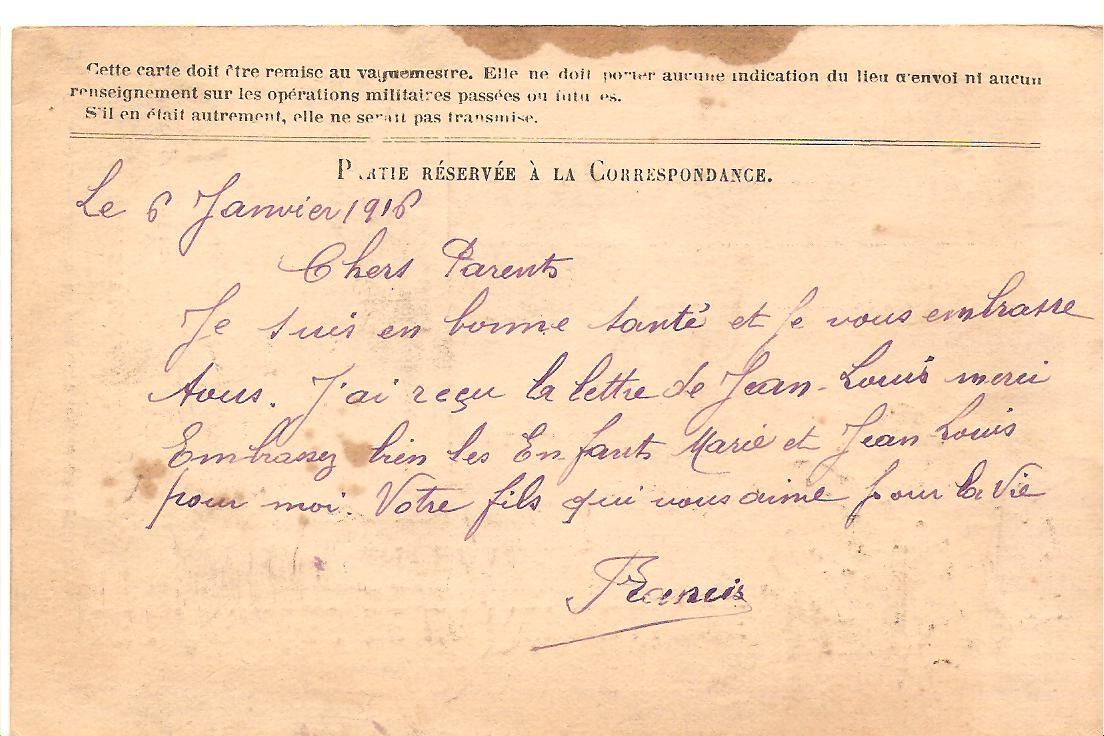 Cette carte doit être remise au vaguemestre. Elle ne doit porter aucune indication du lieu d'envoi ni aucun
renseignement sur les opérations militaires passées ou futures.
S'il en était autrement, elle ne serait pas transmise.
PARTIE RÉSERVÉE À LA CORRESPONDANCE.
Le 6 Janvier 1916
Chers Parents
Je suis en bonne santé et je vous embrasse
tous. J'ai reçu la lettre de Jean-Louis merci
Embrassez bien les Enfants Marie et Jean Louis
pour moi. Votre fils qui vous aime pour la Vie
Francis